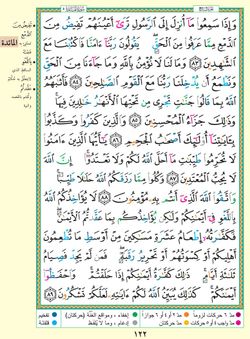 المائدة
وَإِذَا سَمِعُوا۟ مَآ أُنزِلَ إِلَى ٱلرَّسُولِ تَرَىٰٓ أَعْيُنَهُمْ تَفِيضُ مِنَ
ٱلدَّمْعِ مِمَّا عَرَفُوا۟ مِنَ ٱلْحَقِّ يَقُولُونَ رَبَّنَآ ءَامَنَّا فَٱكْتُبْنَا مَعَ
ٱلشَّٰهِدِينَ ٨٣ وَمَا لَنَا لَا نُؤْمِنُ بِٱللَّهِ وَمَا جَآءَنَا مِنَ ٱلْحَقِّ
وَنَطْمَعُ أَن يُدْخِلَنَا رَبُّنَا مَعَ ٱلْقَوْمِ ٱلصَّٰلِحِينَ ٨٤ فَأَثَٰبَهُمُ
ٱللَّهُ بِمَا قَالُوا۟ جَنَّٰتٍ تَجْرِى مِن تَحْتِهَا ٱلْأَنْهَٰرُ خَٰلِدِينَ
فِيهَا وَذَٰلِكَ جَزَآءُ ٱلْمُحْسِنِينَ ٨٥ وَٱلَّذِينَ كَفَرُوا۟ وَكَذَّبُوا۟
بِـَٔايَٰتِنَآ أُو۟لَٰٓئِكَ أَصْحَٰبُ ٱلْجَحِيمِ ٨٦ يَٰٓأَيُّهَا ٱلَّذِينَ ءَامَنُوا۟
لَا تُحَرِّمُوا۟ طَيِّبَٰتِ مَآ أَحَلَّ ٱللَّهُ لَكُمْ وَلَا تَعْتَدُوٓا۟ إِنَّ ٱللَّهَ
لَا يُحِبُّ ٱلْمُعْتَدِينَ ٨٧ وَكُلُوا۟ مِمَّا رَزَقَكُمُ ٱللَّهُ حَلَٰلًا طَيِّبًا
وَٱتَّقُوا۟ ٱللَّهَ ٱلَّذِىٓ أَنتُم بِهِۦ مُؤْمِنُونَ ٨٨ لَا يُؤَاخِذُكُمُ ٱللَّهُ
بِٱللَّغْوِ فِىٓ أَيْمَٰنِكُمْ وَلَٰكِن يُؤَاخِذُكُم بِمَا عَقَّدتُّمُ ٱلْأَيْمَٰنَ
فَكَفَّٰرَتُهُۥٓ إِطْعَامُ عَشَرَةِ مَسَٰكِينَ مِنْ أَوْسَطِ مَا تُطْعِمُونَ
أَهْلِيكُمْ أَوْ كِسْوَتُهُمْ أَوْ تَحْرِيرُ رَقَبَةٍ فَمَن لَّمْ يَجِدْ فَصِيَامُ
ثَلَٰثَةِ أَيَّامٍ ذَٰلِكَ كَفَّٰرَةُ أَيْمَٰنِكُمْ إِذَا حَلَفْتُمْ وَٱحْفَظُوٓا۟
أَيْمَٰنَكُمْ كَذَٰلِكَ يُبَيِّنُ ٱللَّهُ لَكُمْ ءَايَٰتِهِۦ لَعَلَّكُمْ تَشْكُرُونَ ٨٩
١٢٢